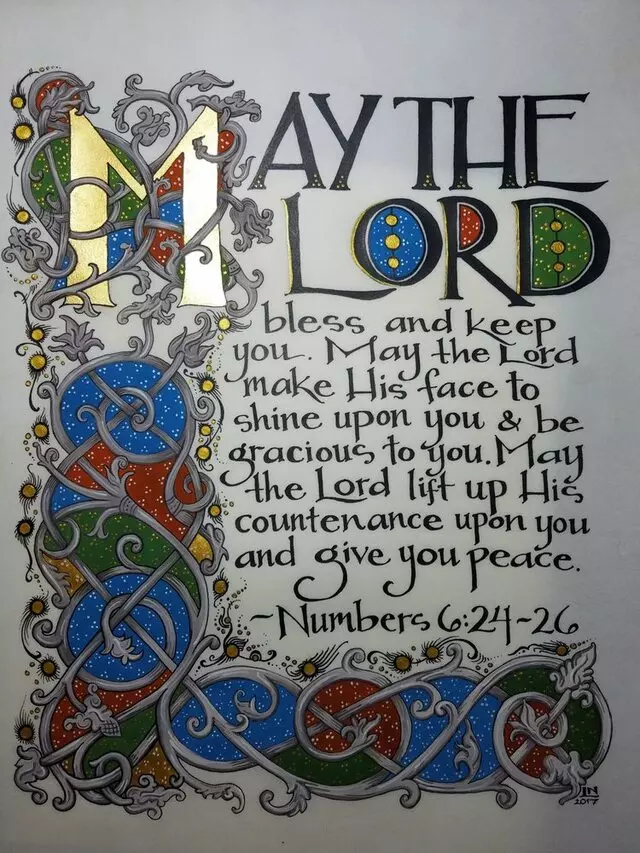 MAY THE
LORD
bless and keep
you. May the Lord
make His face to
shine upon you & be
gracious to you. May
the Lord lift up His
countenance upon you
and give you peace.
~Numbers 6:24~26
IN
2017